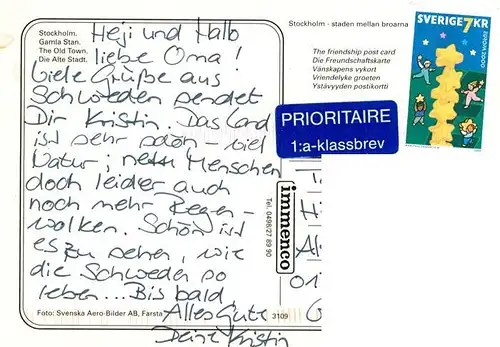 Stockholm.
Gamla Stan.
The Old Town.
Die Alte Stadt.
Heji und Hallo
liebe Oma!
viele Grüße aus
Schweden sendet
Dir Kristin. Das Land
ist sehr schön - viel
Natur; nette Menschen
doch leider auch
noch mehr Regen-
wolken. Schön ist
es zu sehen, wie
die Schweden so
leben... Bis bald,
Alles Gute
Deine Kristin
Foto: Svenska Aero-Bilder AB, Farsta
3109
Stockholm - staden mellan broarna
The friendship post card
Die Freundschaftskarte
Vänskapens vykort
Vriendelyke groeten
Ystävyyden postikortti
SVERIGE 7KR
EUROPA 2000
PRIORITAIRE
1:a-klassbrev
immenco
Tel. 0498/27 89 90